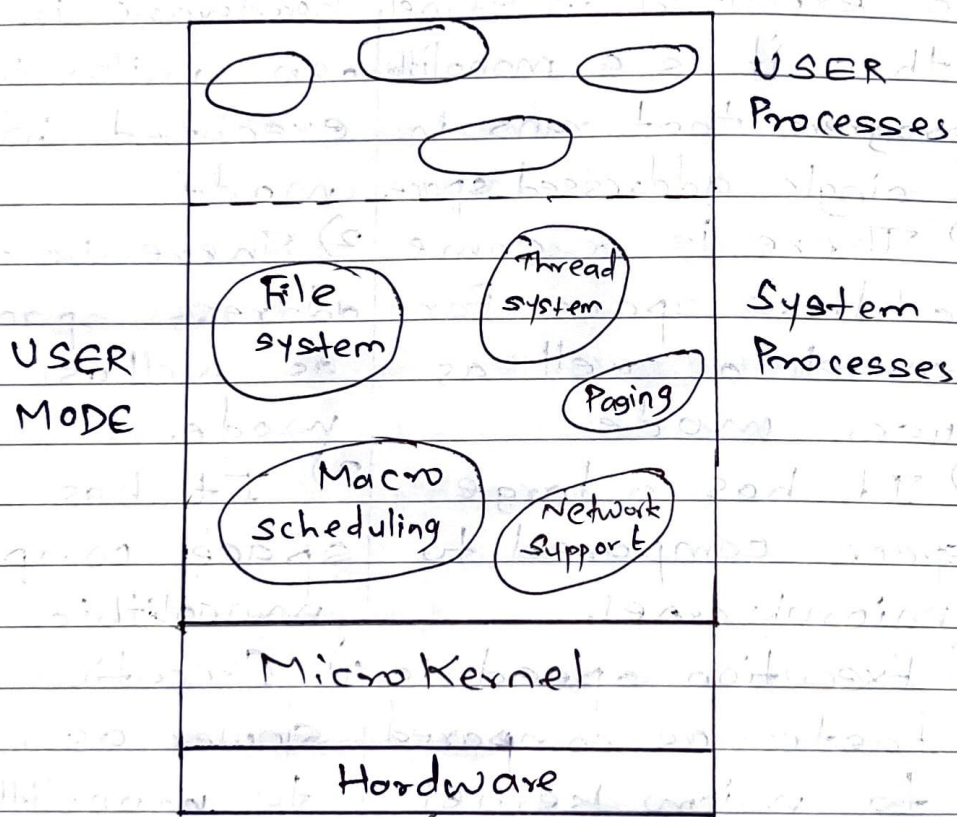 USER
Processes
File
system
Thread
system
System
Processes
USER
MODE
Paging
Macro
scheduling
Network
Support
Micro Kernel
Hardware